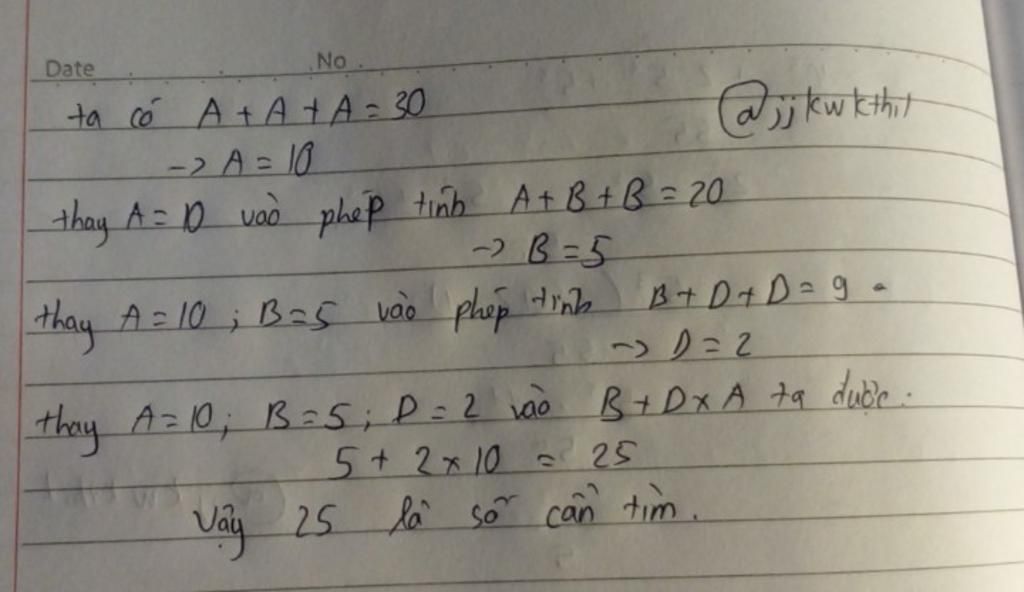 Date No.
ta có A + A + A = 30
@jjkwkthi1
-> A = 10
thay A = 10 vào phép tính A + B + B = 20
-> B = 5
thay A = 10 ; B = 5 vào phép tính B + D + D = 9
-> D = 2
thay A = 10; B = 5; D = 2 vào B + D x A ta được:
5 + 2 x 10 = 25
Vậy 25 là số cần tìm.